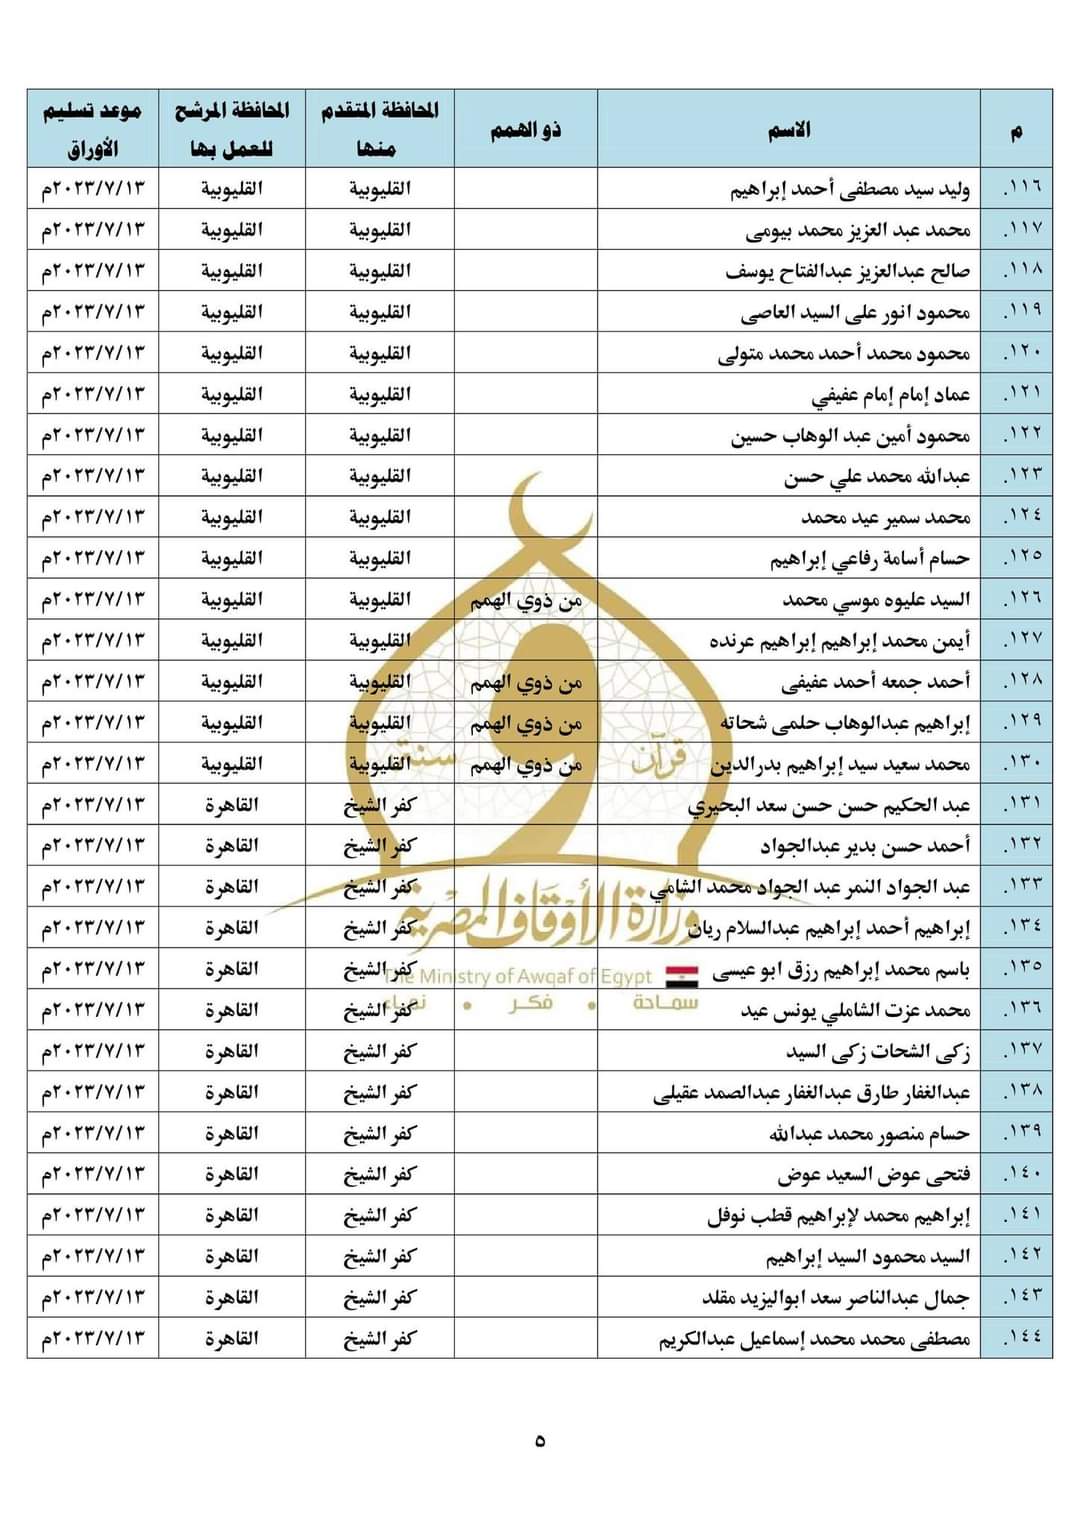 م الاسم ذو الهمم المحافظة المتقدم منها المحافظة المرشح للعمل بها موعد تسليم الأوراق
١١٦. وليد سيد مصطفى أحمد إبراهيم القليوبية القليوبية ٢٠٢٣/٧/١٣م
١١٧. محمد عبد العزيز محمد بيومى القليوبية القليوبية ٢٠٢٣/٧/١٣م
١١٨. صالح عبدالعزيز عبدالفتاح يوسف القليوبية القليوبية ٢٠٢٣/٧/١٣م
١١٩. محمود انور على السيد العاصى القليوبية القليوبية ٢٠٢٣/٧/١٣م
١٢٠. محمود محمد أحمد محمد متولى القليوبية القليوبية ٢٠٢٣/٧/١٣م
١٢١. عماد إمام إمام عفيفي القليوبية القليوبية ٢٠٢٣/٧/١٣م
١٢٢. محمود أمين عبد الوهاب حسين القليوبية القليوبية ٢٠٢٣/٧/١٣م
١٢٣. عبدالله محمد علي حسن القليوبية القليوبية ٢٠٢٣/٧/١٣م
١٢٤. محمد سمير عيد محمد القليوبية القليوبية ٢٠٢٣/٧/١٣م
١٢٥. حسام أسامة رفاعي إبراهيم القليوبية القليوبية ٢٠٢٣/٧/١٣م
١٢٦. السيد عليوه موسي محمد من ذوي الهمم القليوبية القليوبية ٢٠٢٣/٧/١٣م
١٢٧. أيمن محمد إبراهيم إبراهيم عرنده القليوبية القليوبية ٢٠٢٣/٧/١٣م
١٢٨. أحمد جمعه أحمد عفيفى من ذوي الهمم القليوبية القليوبية ٢٠٢٣/٧/١٣م
١٢٩. إبراهيم عبدالوهاب حلمى شحاته من ذوي الهمم القليوبية القليوبية ٢٠٢٣/٧/١٣م
١٣٠. محمد سعيد سيد إبراهيم بدرالدين من ذوي الهمم القليوبية القليوبية ٢٠٢٣/٧/١٣م
١٣١. عبد الحكيم حسن حسن سعد البحيري كفر الشيخ القاهرة ٢٠٢٣/٧/١٣م
١٣٢. أحمد حسن بدير عبدالجواد كفر الشيخ القاهرة ٢٠٢٣/٧/١٣م
١٣٣. عبد الجواد النمر عبد الجواد محمد الشامي كفر الشيخ القاهرة ٢٠٢٣/٧/١٣م
١٣٤. إبراهيم أحمد إبراهيم عبدالسلام ريان كفر الشيخ القاهرة ٢٠٢٣/٧/١٣م
١٣٥. باسم محمد إبراهيم رزق ابو عيسى كفر الشيخ القاهرة ٢٠٢٣/٧/١٣م
١٣٦. محمد عزت الشاملي يونس عيد كفر الشيخ القاهرة ٢٠٢٣/٧/١٣م
١٣٧. زكى الشحات زكى السيد كفر الشيخ القاهرة ٢٠٢٣/٧/١٣م
١٣٨. عبدالغفار طارق عبدالغفار عبدالصمد عقيلى كفر الشيخ القاهرة ٢٠٢٣/٧/١٣م
١٣٩. حسام منصور محمد عبدالله كفر الشيخ القاهرة ٢٠٢٣/٧/١٣م
١٤٠. فتحى عوض السعيد عوض كفر الشيخ القاهرة ٢٠٢٣/٧/١٣م
١٤١. إبراهيم محمد لإبراهيم قطب نوفل كفر الشيخ القاهرة ٢٠٢٣/٧/١٣م
١٤٢. السيد محمود السيد إبراهيم كفر الشيخ القاهرة ٢٠٢٣/٧/١٣م
١٤٣. جمال عبدالناصر سعد ابواليزيد مقلد كفر الشيخ القاهرة ٢٠٢٣/٧/١٣م
١٤٤. مصطفى محمد محمد إسماعيل عبدالكريم كفر الشيخ القاهرة ٢٠٢٣/٧/١٣م
قرآن و سنة
وزارة الأوقاف المصرية
The Ministry of Awqaf of Egypt
سماحة • فكر • نماء
٥